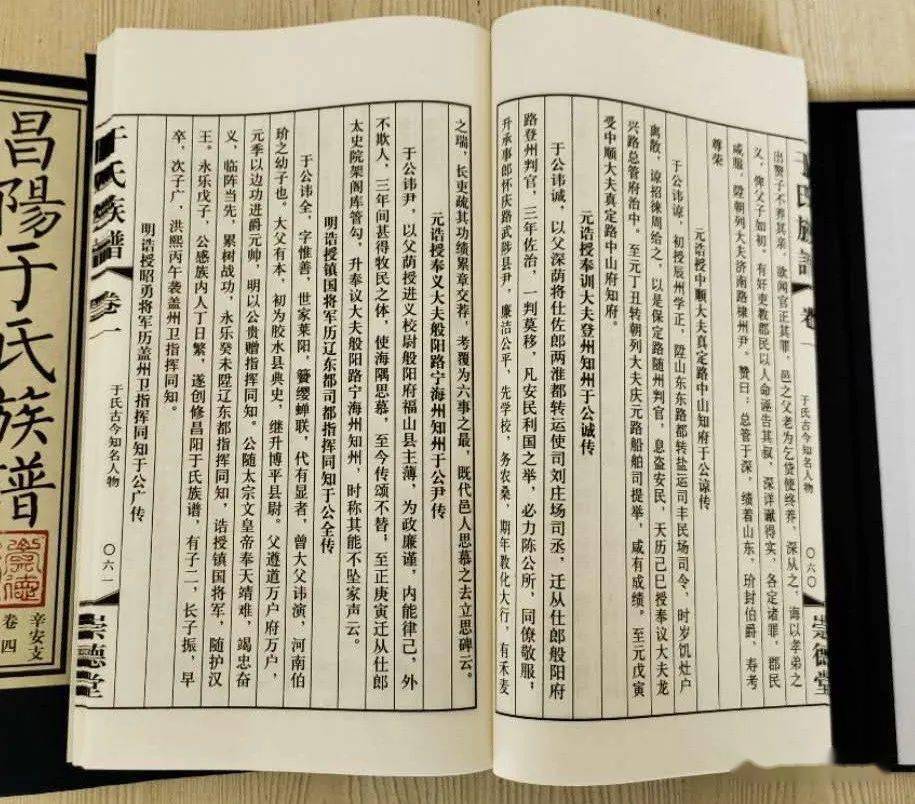 于氏族谱 卷一 于氏古今知名人物 〇六〇 崇德堂
出赘子不养其亲，歌闻官正其罪，邑之父老为乞贷便终养，深从之，诲以孝弟之
义，俾父子如初。有奸吏教郡民以人命诬告其叔，深详谳得实，各定诸罪，郡民
咸服，陞朝列大夫济南路棣州尹。赞曰：总管于深，绩着山东，玠封伯爵，寿考
尊荣
元诰授中顺大夫真定路中山知府于公谅传
于公讳谅，初授辰州学正，陞山东东路都转盐运司丰民场司令，时岁饥灶户
离散，谅招徕周给之，以是保定路随州判官，息盗安民，天历己巳授奉议大夫龙
兴路总管府治中。至元丁丑转朝列大夫庆元路船舶司提举，咸有成绩。至元戊寅
受中顺大夫真定路中山府知府。
元诰授奉训大夫登州知州于公诚传
于公讳诚，以父深荫将仕佐郎两淮都转运使司刘庄场司丞，迁从仕郎般阳府
路登州判官，三年佐治，一判莫移，凡安民利国之举，必力陈公所，同僚敬服；
升承事郎怀庆路武陟县尹，廉洁公平，先学校，务农桑，期年教化大行，有禾麦
之瑞，长吏疏其功绩累章交荐，考覆为六事之最，既代邑人思慕之去立思碑云。
元诰授奉义大夫般阳路宁海州知州于公尹传
于公讳尹，以父荫授进义校尉般阳府福山县主薄，为政廉谨，内能律己，外
不欺人，三年间甚得牧民之体，使海隅思慕，至今传颂不替；至正庚寅迁从仕郎
太史院架阁库管勾，升奉议大夫般阳路宁海州知州，时称其能不坠家声云。
明诰授镇国将军历辽东都司都指挥同知于公全传
于公讳全，字惟善，世家莱阳，簪缨蝉联，代有显者，曾大父讳演，河南伯
玠之幼子也。大父有本，初为胶水县典史，继升博平县尉。父遵道万户府万户，
元季以边功进爵元帅，明以公贵赠指挥同知。公随太宗文皇帝奉天靖难，竭忠奋
义，临阵当先，累树战功，永乐癸未陞辽东都指挥同知，诰授镇国将军，随护汉
王。永乐戊子，公感族内人丁日繁，遂创修昌阳于氏族谱，有子二，长子振，早
卒，次子广，洪熙丙午袭盖州卫指挥同知。
明诰授昭勇将军历盖州卫指挥同知于公广传
于氏族谱 卷一 于氏古今知名人物 〇六一 崇德堂
昌陽于氏族谱
辛安支
卷四